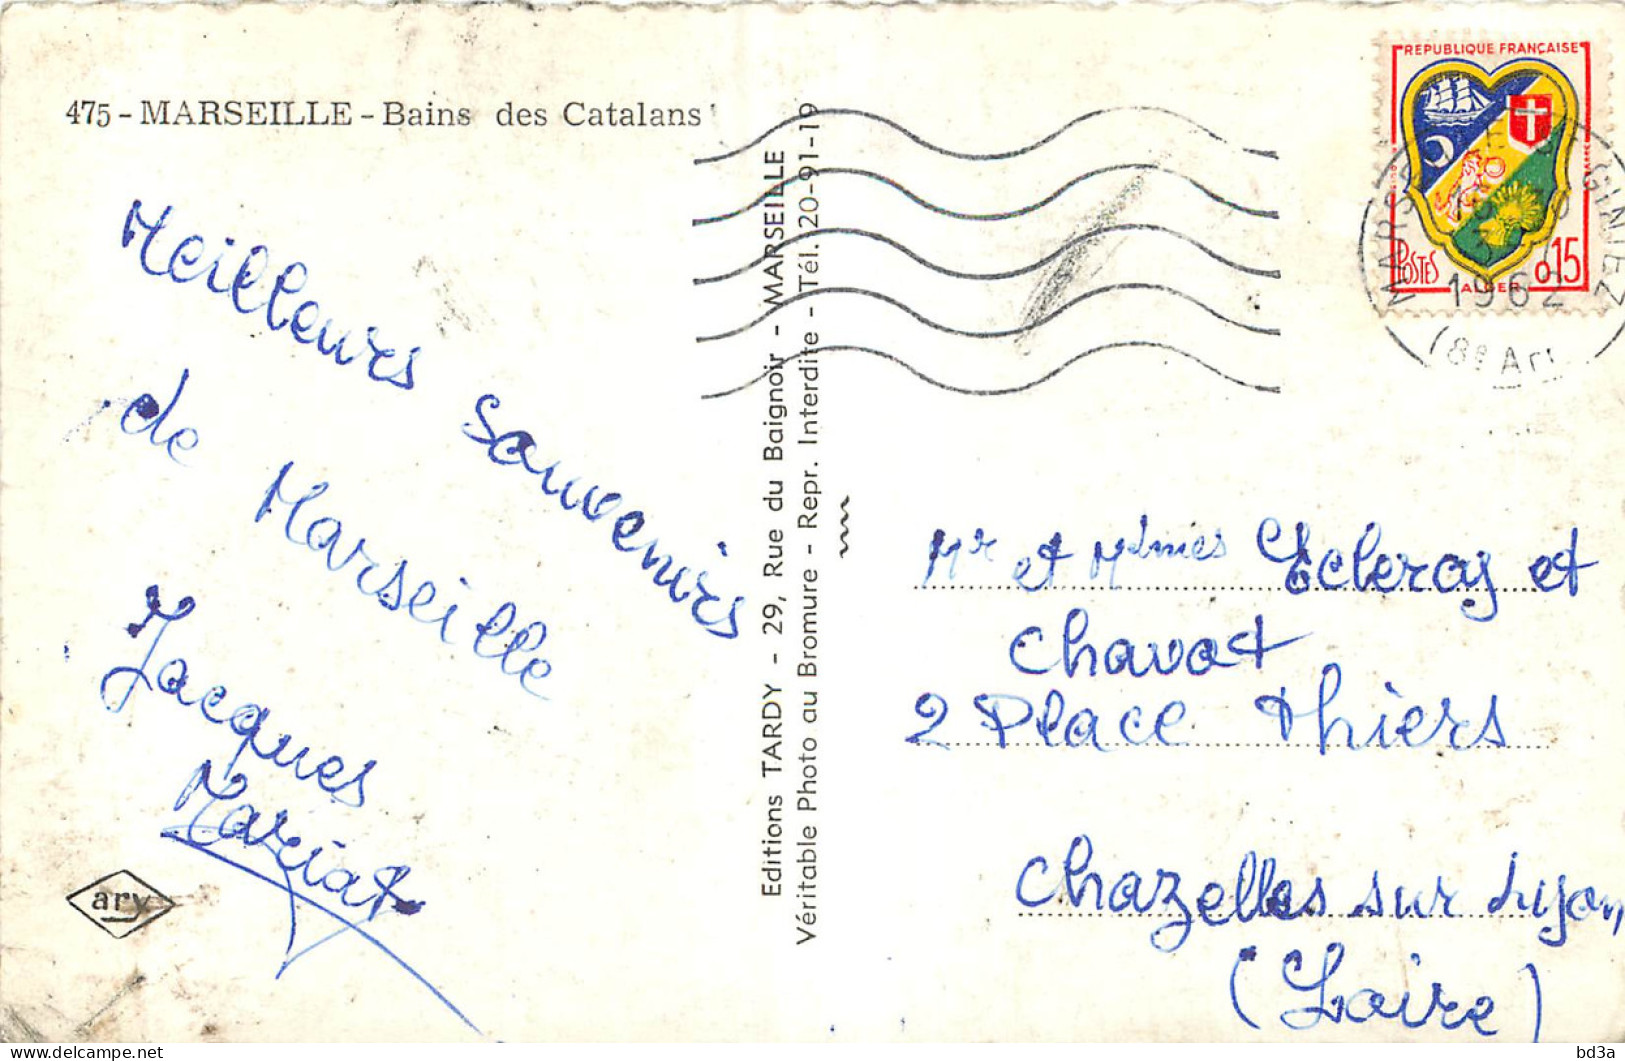 475 - MARSEILLE - Bains des Catalans
Meilleurs souvenirs
de Marseille
Jacques
Mariat
ary
Editions TARDY - 29, Rue du Baignoir - MARSEILLE
Véritable Photo au Bromure - Repr. Interdite - Tél. 20-91-19
REPUBLIQUE FRANÇAISE
POSTES
ALGER
0,15
1962
(8e Arr
Mr et Mmes Ecleray et
Chavot
2 Place Thiers
Chazelles sur Lyon
(Loire)
bd3a